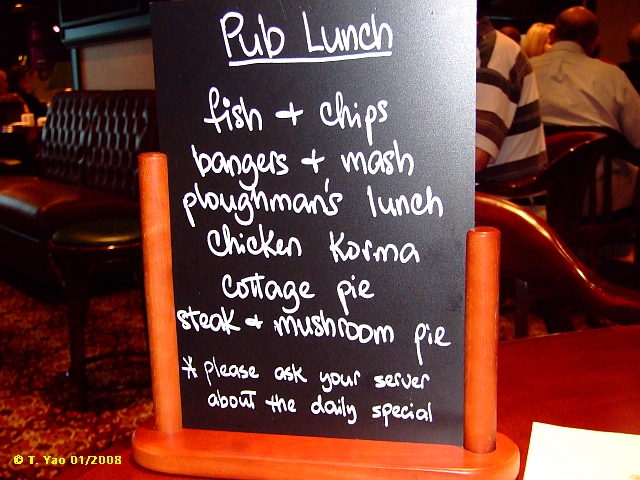 Pub Lunch
fish + chips
bangers + mash
ploughman's lunch
chicken Korma
cottage pie
steak + mushroom pie
* please ask your server
about the daily special
© T. Yao 01/2008